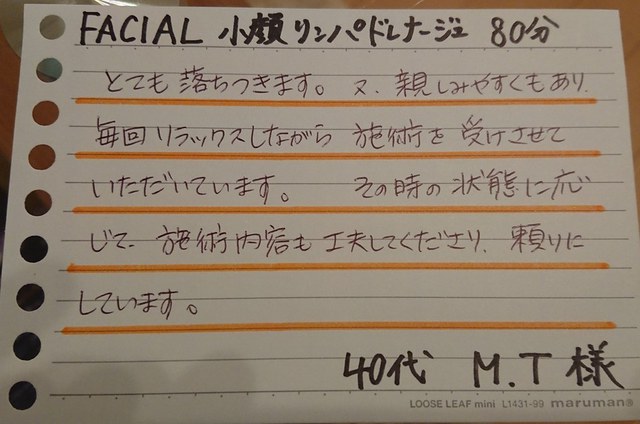 FACIAL 小顔リンパドレナージュ 80分
とても落ちつきます。又、親しみやすくもあり、
毎回リラックスしながら 施術を受けさせて
いただいています。 その時の状態に応
じて、施術内容も工夫してくださり、頼りに
しています。
40代 M.T様
LOOSE LEAF mini L1431-99 maruman®